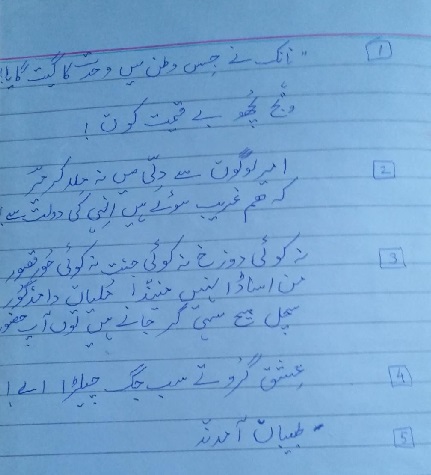 1
نانک نے جس وطن میں وحدت کا گیت گایا!
بے قیمت کوں !
2
امیرلوگوں سے دلّی میں نہ ملا کر میر
کہ ہم غریب ہوئے ہیں اِنہی کی دولت سے!
3
نہ کوئی دوزخ نہ کوئی جنت نہ کوئی حُور قصور
من اساڈا نہیں منیندا
سچل سچ کر جانے ہیں توں آپ حضور
4
عِشق گُرو تے سب جگ چیلا اے!
5
طبیباں آمدند